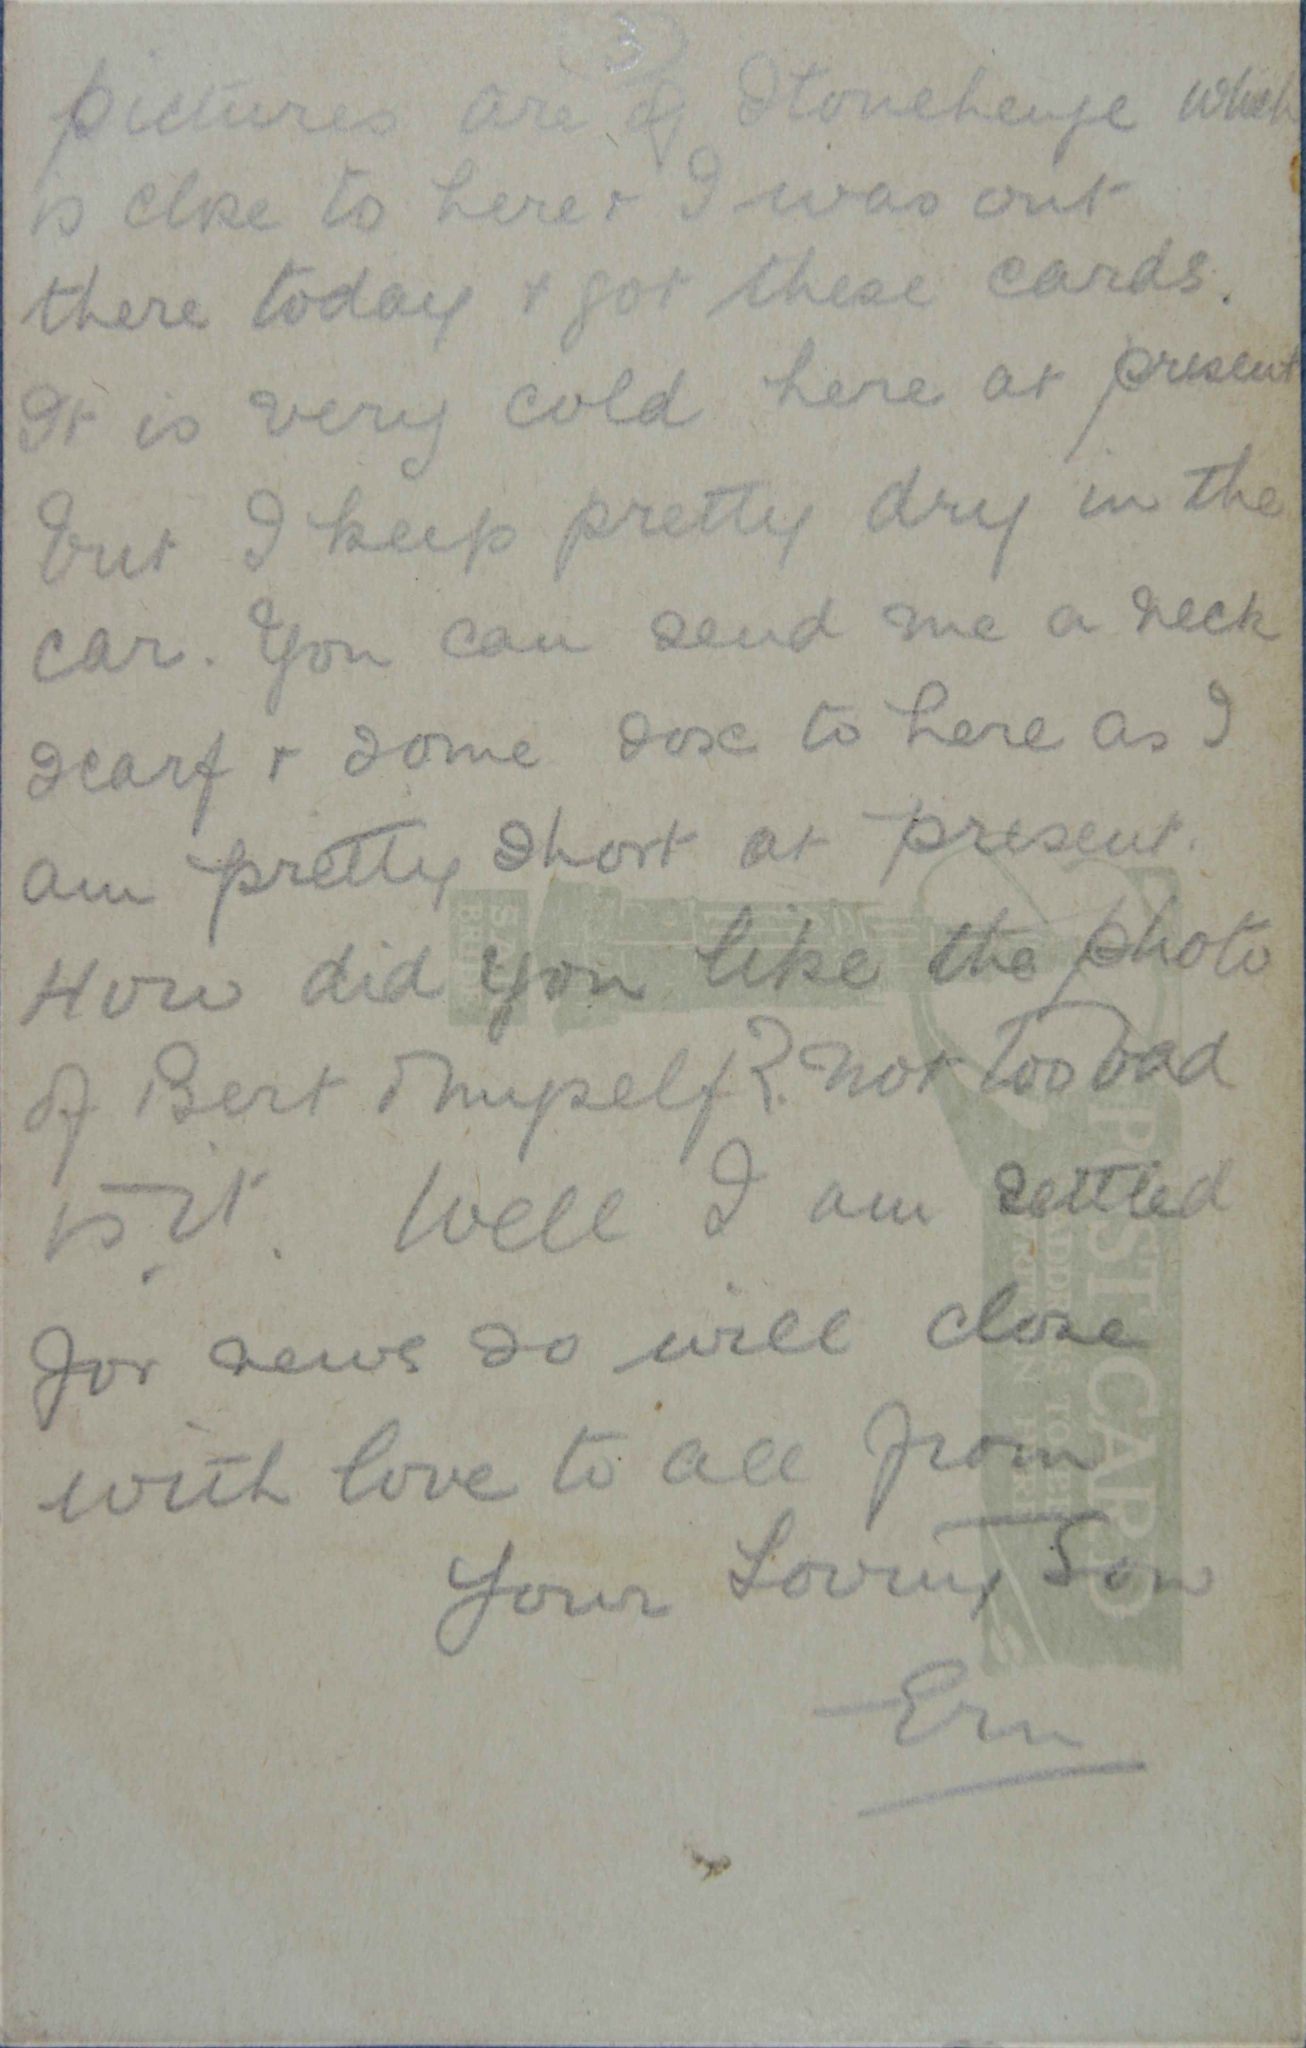 (3)
pictures are of Stonehenge which
is close to here + I was out
there today + got these cards.
It is very cold here at present
but I keep pretty dry in the
car. You can send me a neck
scarf + some sox to here as I
am pretty short at present.
How did you like the photo
of Bert & myself? not too bad
is it. Well I am settled
for news so will close
with love to all from
Your Loving Son
Ern
POST CARD
ADDRESS TO BE
WRITTEN HERE